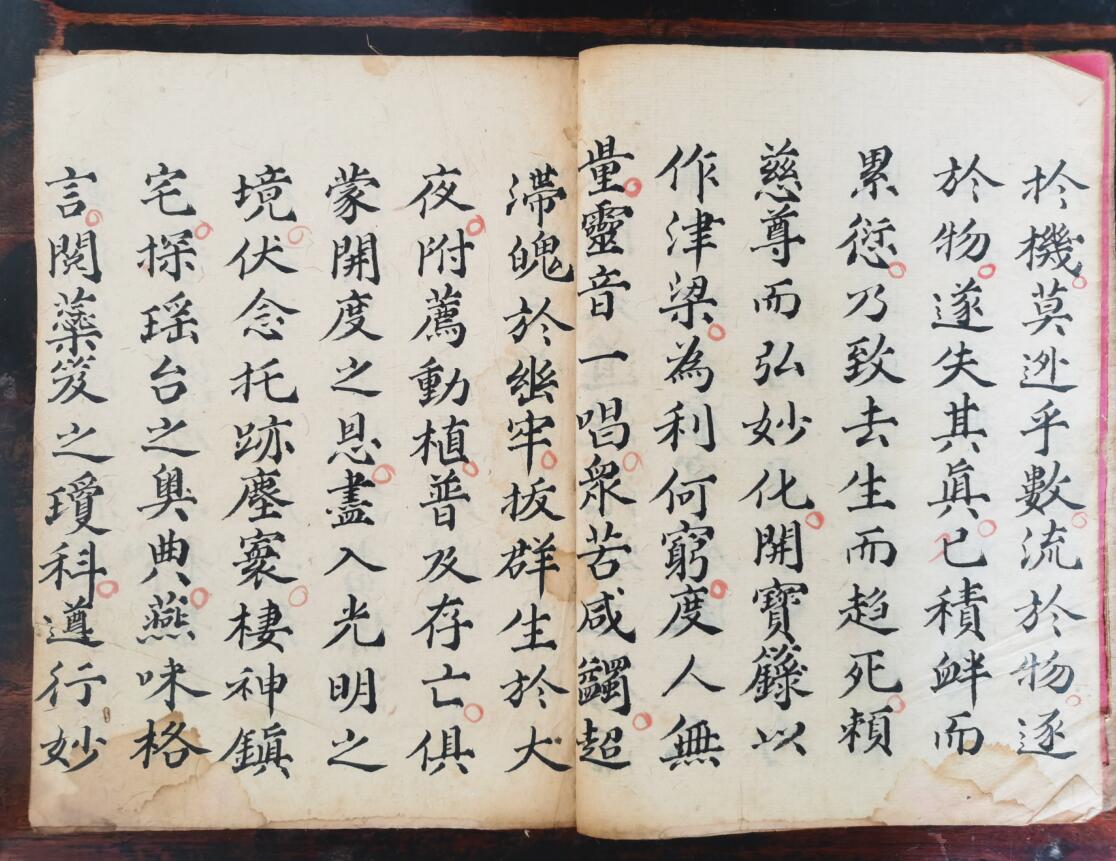 於機。莫迯乎數。流於物。逐
於物。遂失其真。已積衅而
累愆。乃致去生而趋死。頼
慈尊而弘妙化。開寶籙以
作津梁。為利何窮。度人無
量。靈音一唱。衆苦咸蠲。超
滯魄於幽牢。拔群生於大
夜。附薦動植。普及存亡。俱
蒙開度之恩。盡入光明之
境。伏念托跡塵寰。棲神鎮
宅。探瑶台之奥典。燕味格
言。閱蘂笈之瓊科。遵行妙